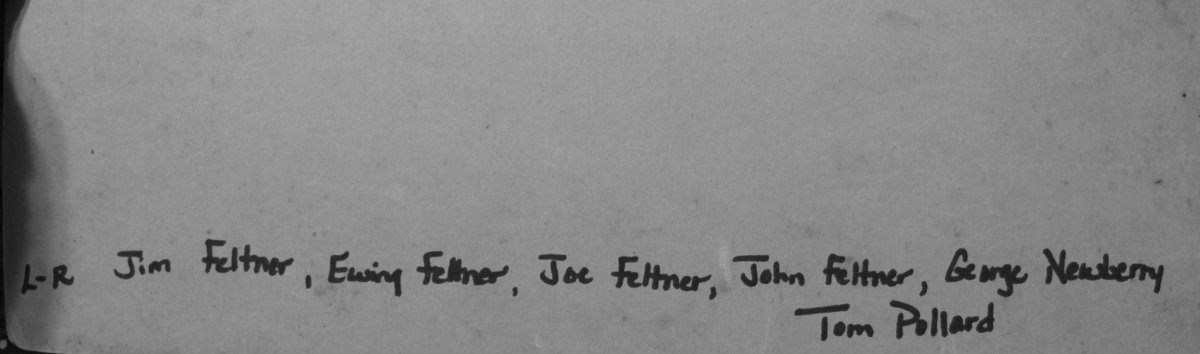 L-R Jim Feltner, Ewing Feltner, Joe Feltner, John Feltner, George Newberry
Tom Pollard